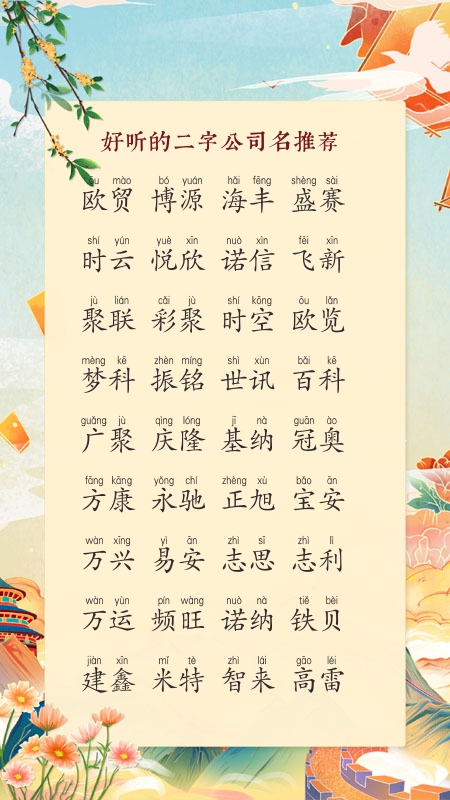 好听的二字公司名推荐
ōu mào bó yuán hǎi fēng shèng sài
欧贸 博源 海丰 盛赛
shí yún yuè xīn nuò xìn fēi xīn
时云 悦欣 诺信 飞新
jù lián cǎi jù shí kōng ōu lǎn
聚联 彩聚 时空 欧览
mèng kē zhèn míng shì xùn bǎi kē
梦科 振铭 世讯 百科
guǎng jù qìng lóng jī nà guān ào
广聚 庆隆 基纳 冠奥
fāng kāng yǒng chí zhèng xù bǎo ān
方康 永驰 正旭 宝安
wàn xīng yì ān zhì sī zhì lì
万兴 易安 志思 志利
wàn yùn pín wàng nuò nà tiě bèi
万运 频旺 诺纳 铁贝
jiàn xīn mǐ tè zhì lái gāo léi
建鑫 米特 智来 高雷